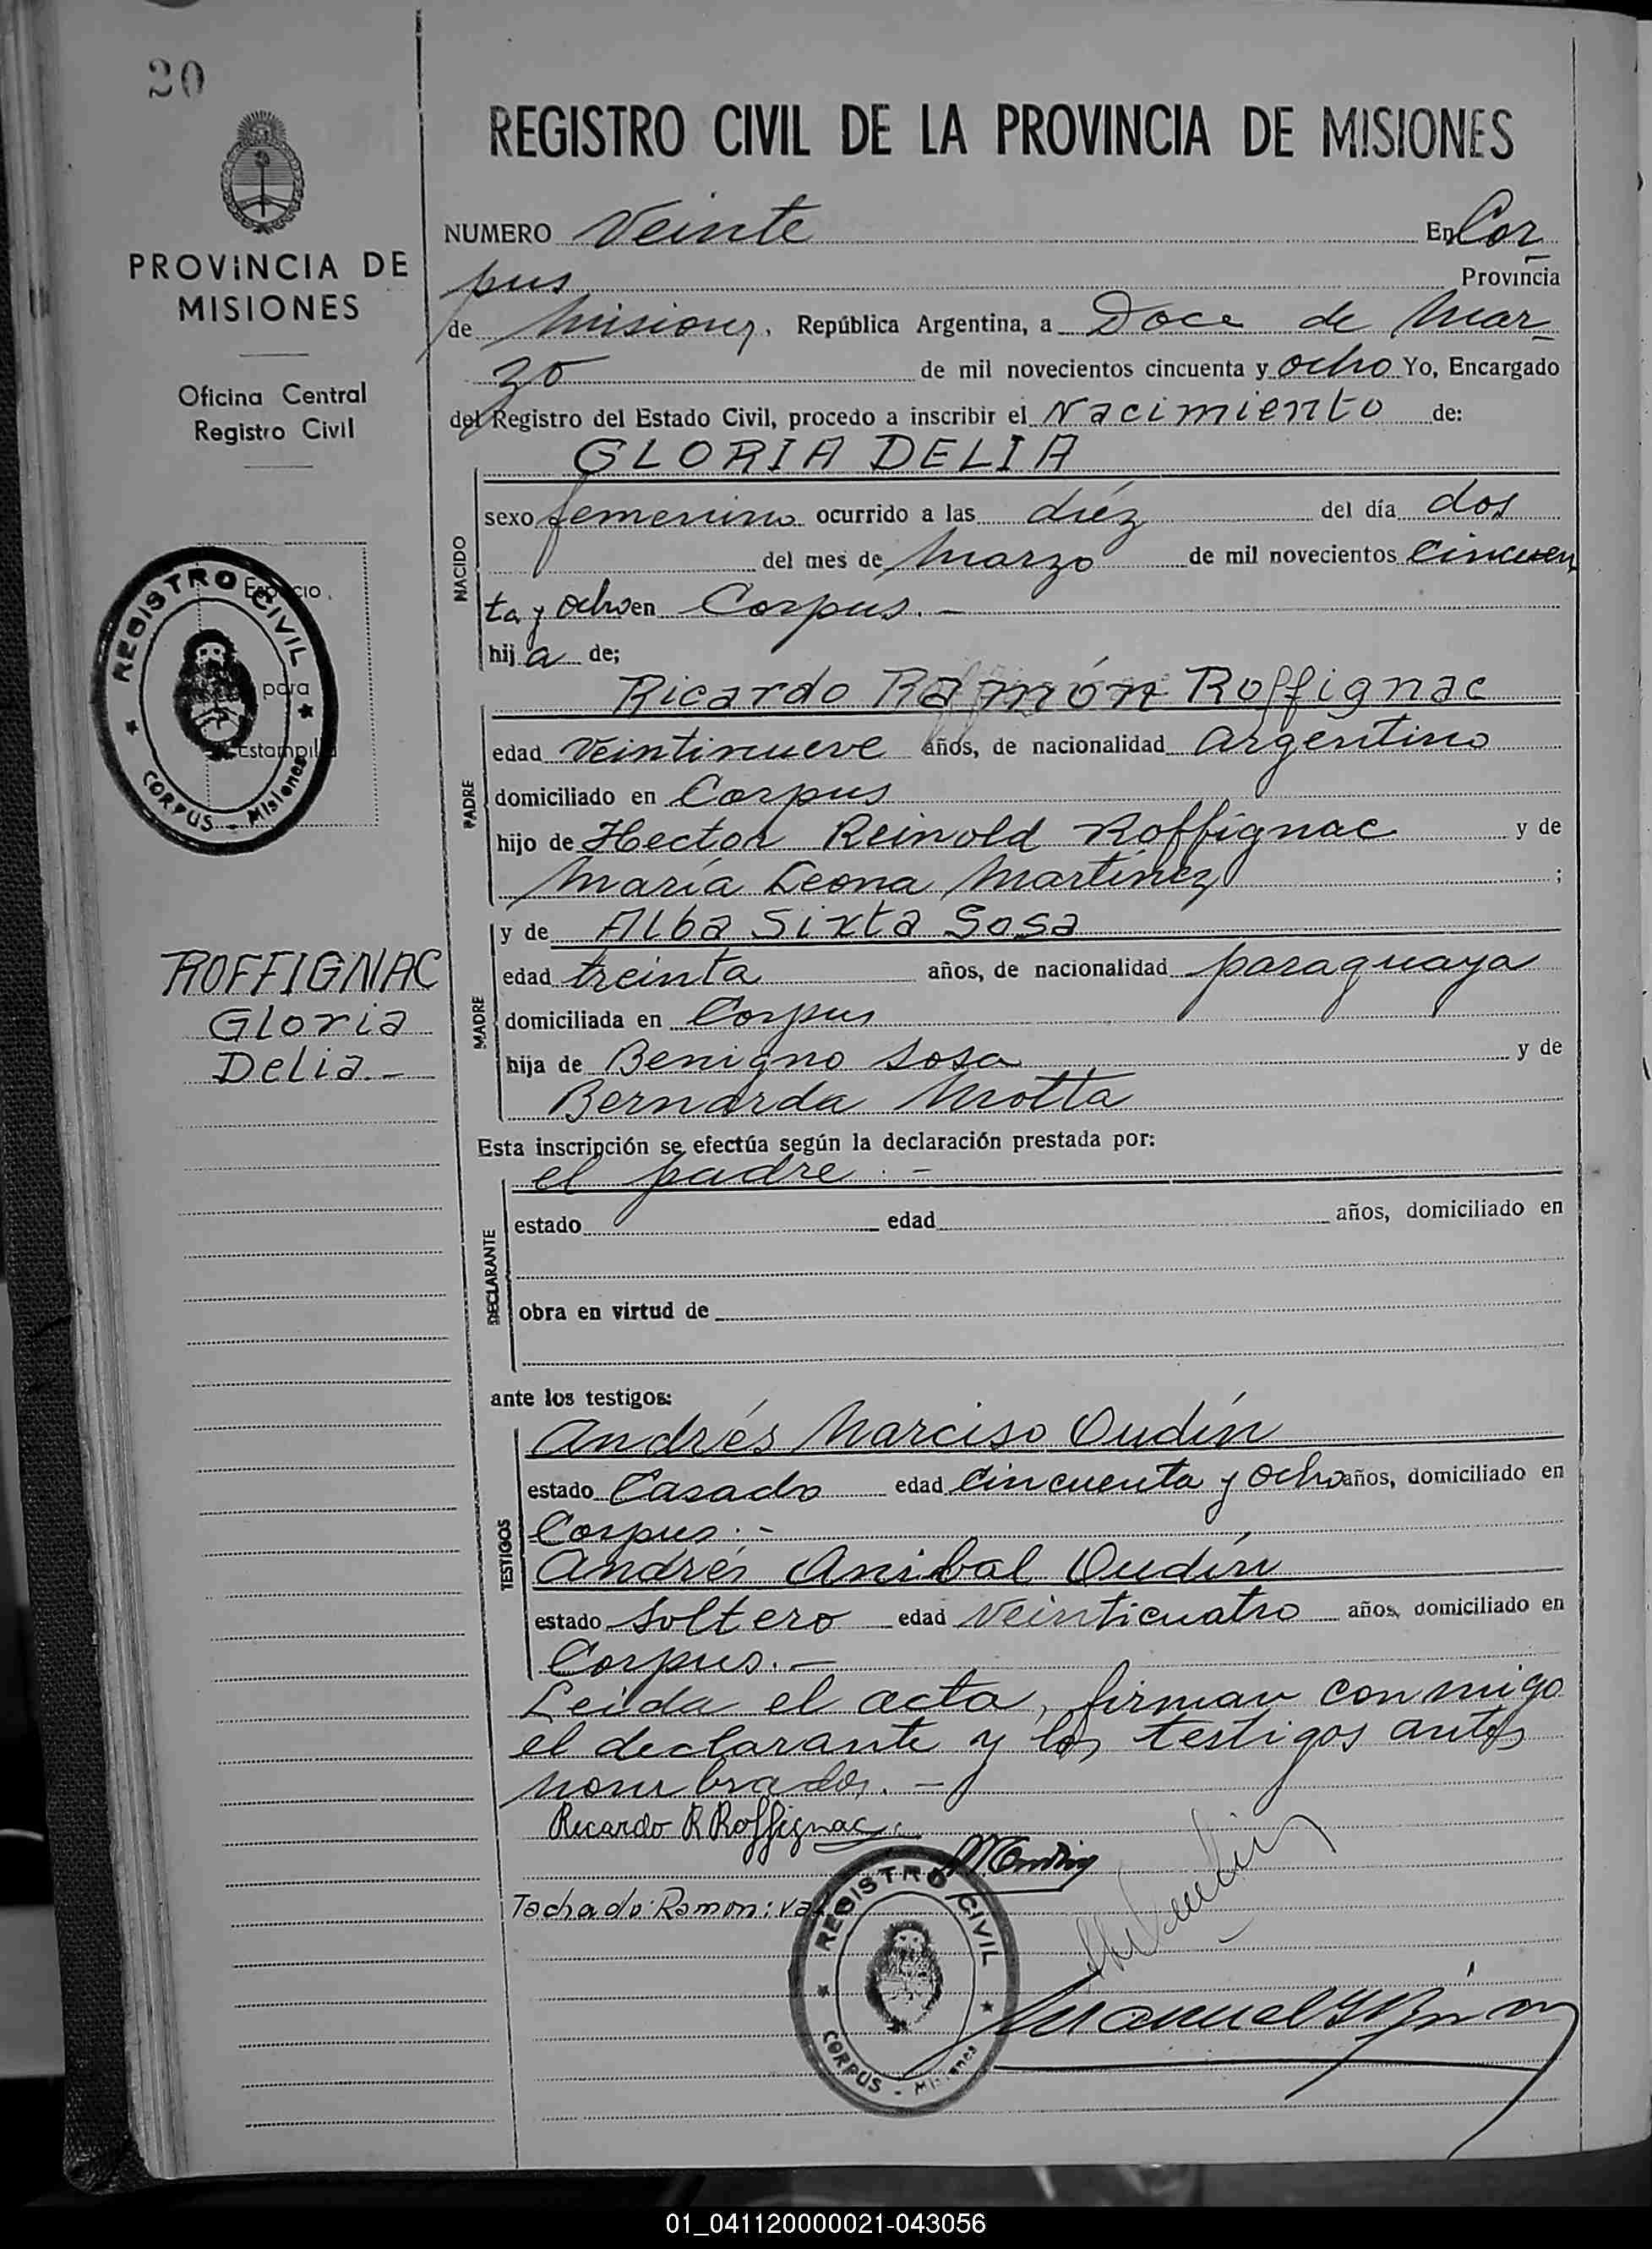 20
PROVINCIA DE
MISIONES
Oficina Central
Registro Civil
Espacio
para
Estampilla
REGISTRO CIVIL
CORPUS - Misiones
ROFFIGNAC
Gloria
Delia.-
REGISTRO CIVIL DE LA PROVINCIA DE MISIONES
NUMERO Veinte En Cor
pus Provincia
de Misiones, República Argentina, a Doce de Mar
zo de mil novecientos cincuenta y ocho Yo, Encargado
del Registro del Estado Civil, procedo a inscribir el Nacimiento de:
GLORIA DELIA
NACIDO
sexo femenino ocurrido a las diéz del día dos
del mes de Marzo de mil novecientos cincuen
ta y ocho en Corpus.-
hij a de;
Ricardo Ramón Roffignac
PADRE
edad Veintinueve años, de nacionalidad Argentino
domiciliado en Corpus
hijo de Hector Reinold Roffignac y de
María Leona Martínez ;
y de Alba Sixta Sosa
MADRE
edad treinta años, de nacionalidad paraguaya
domiciliada en Corpus
hija de Benigno Sosa y de
Bernarda Motta
Esta inscripción se efectúa según la declaración prestada por:
el padre.-
DECLARANTE
estado edad años, domiciliado en
obra en virtud de
ante los testigos:
Andrés Narciso Oudín
TESTIGOS
estado Casado edad Cincuenta y ocho años, domiciliado en
Corpus.-
Andrés Anibal Oudín
estado Soltero edad Veinticuatro años, domiciliado en
Corpus.-
Leida el acta, firman conmigo
el declarante y los testigos antes
nombrados.-
Ricardo R Roffignac
Tachado: Ramon: va
REGISTRO CIVIL
CORPUS - Misiones
01_041120000021-043056